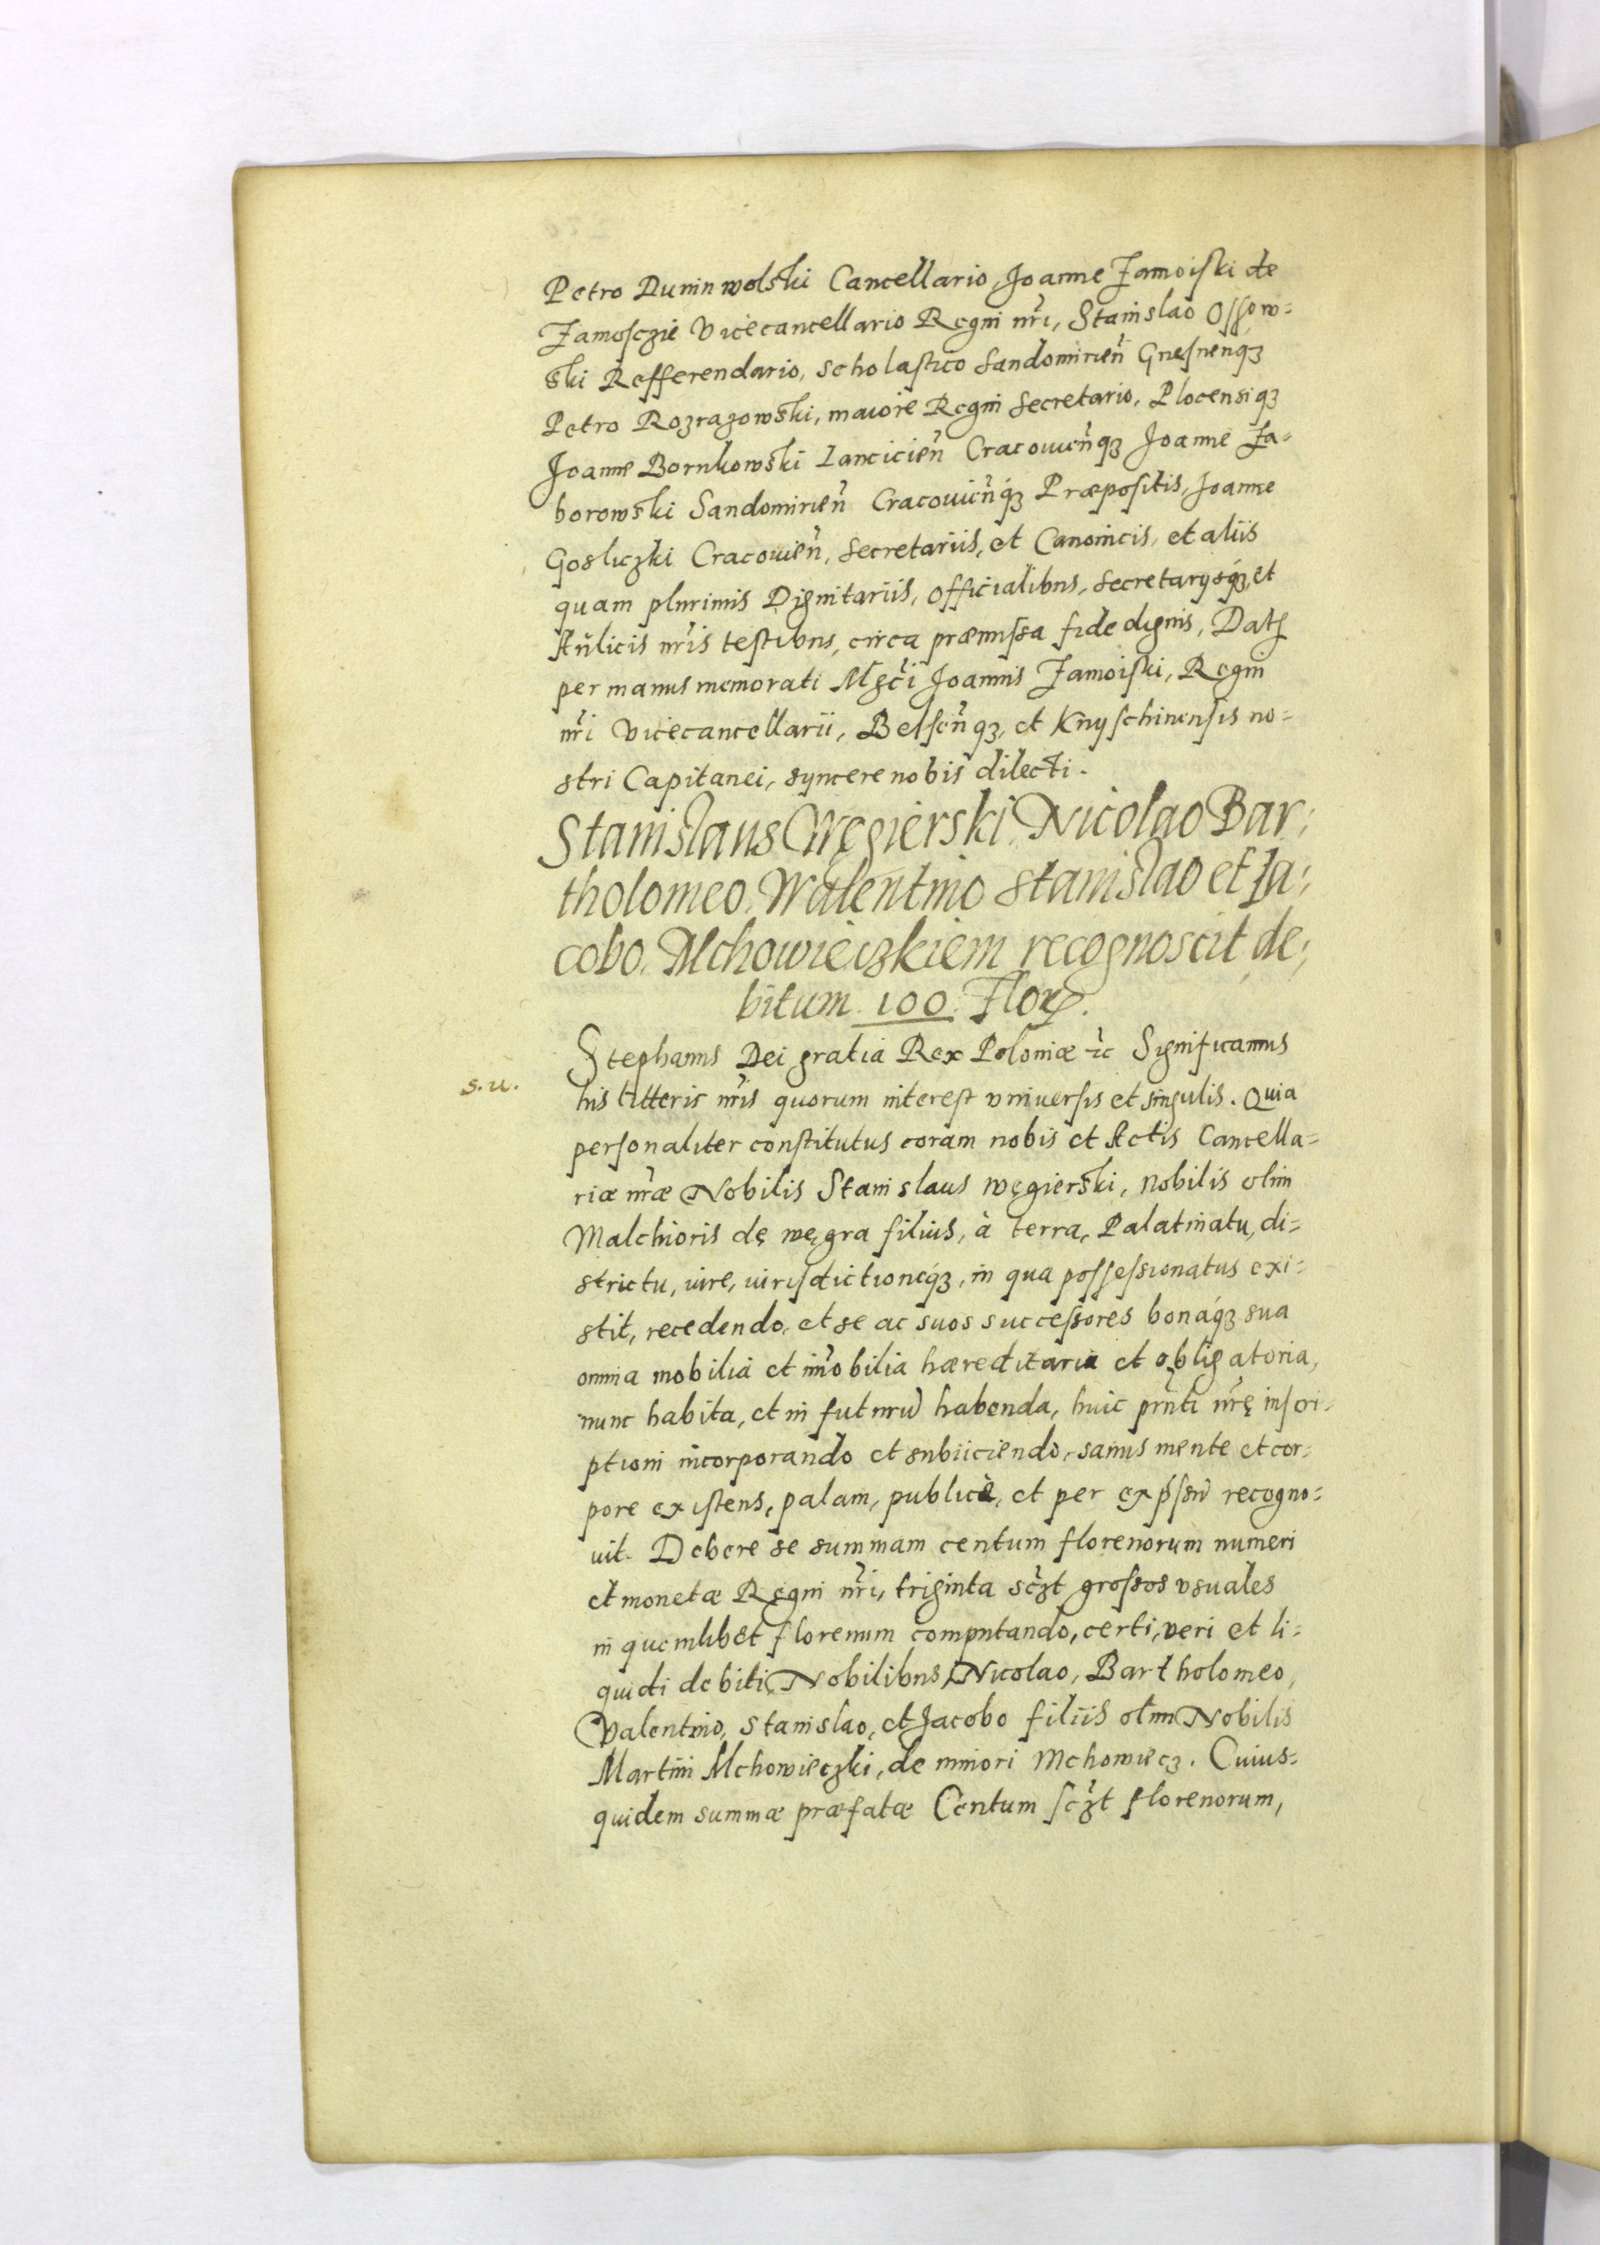 Petro Duninwolski Cancellario, Joanne Zamoiski de
Zamosczie Vicecancellario Regni nr̃i, Stanislao Ossow=
ski Refferendario, Scholastico Sandomirień Gnesnenq;
Petro Rozrazowski, maiore Regni Secretario, Plocensiq;
Joanne Bornkowski Lancicień Cracouieńq; Joanne Za=
borowski Sandomirień Cracouieńq; Præpositis, Joanne
Gosliczki Cracouień, Secretariis, et Canonicis, et aliis
quam plurimis Dignitariis, Officialibus, Secretarysq;, et
Aulicis nr̃is testibus, circa præmissa fide dignis, Datꝭ
per manus memorati Mg̃ci Joannis Zamoiski, Regni
nr̃i Vicecancellarii, Belseńq;, et Knyschinensis no=
stri Capitanei, syncere nobis dilecti.
Stanislaus Węgierski Nicolao Bar=
tholomeo. Walentino Stanislao et Ja=
cobo. Mchowieczkiem recognoscit de=
bitum. 100. Florꝭ.
Stephanus Dei gratia Rex Poloniæ ꝛc̃ Significamus
s. u.
his litteris nr̃is quorum interest vniuersis et singulis. Quia
personaliter constitutus coram nobis et Actis Cancella=
riæ nr̃æ Nobilis Stanislaus węgierski, nobilis olim
Malchioris de węgra filius, à terra, Palatinatu, di=
strictu, iure, iurisdictioneq́;, in qua possessionatus exi=
stit, recedendo, et se ac suos successores bonaq́; sua
omnia mobilia et im̃obilia hæreditaria et obligatoria,
nunc habita, et in futurũ habenda, huic pr̃nti nr̃ę inscri=
ptioni incorporando et subiiciendo, sanus mente et cor=
pore existens, palam, publicè, et per exp̃ssũ recogno=
uit. Debere se summam centum florenorum numeri
et monetæ Regni nr̃i, triginta sc̃zt grossos vsuales
in quemlibet florenum computando, certi, veri et li=
quidi debiti, Nobilibus, Nicolao, Bartholomeo,
Valentino, Stanislao, et Jacobo filiis olim Nobilis
Martini Mchowieczki, de minori Mchowiecz. Cuius=
quidem summæ præfatæ Centum sc̃zt florenorum,